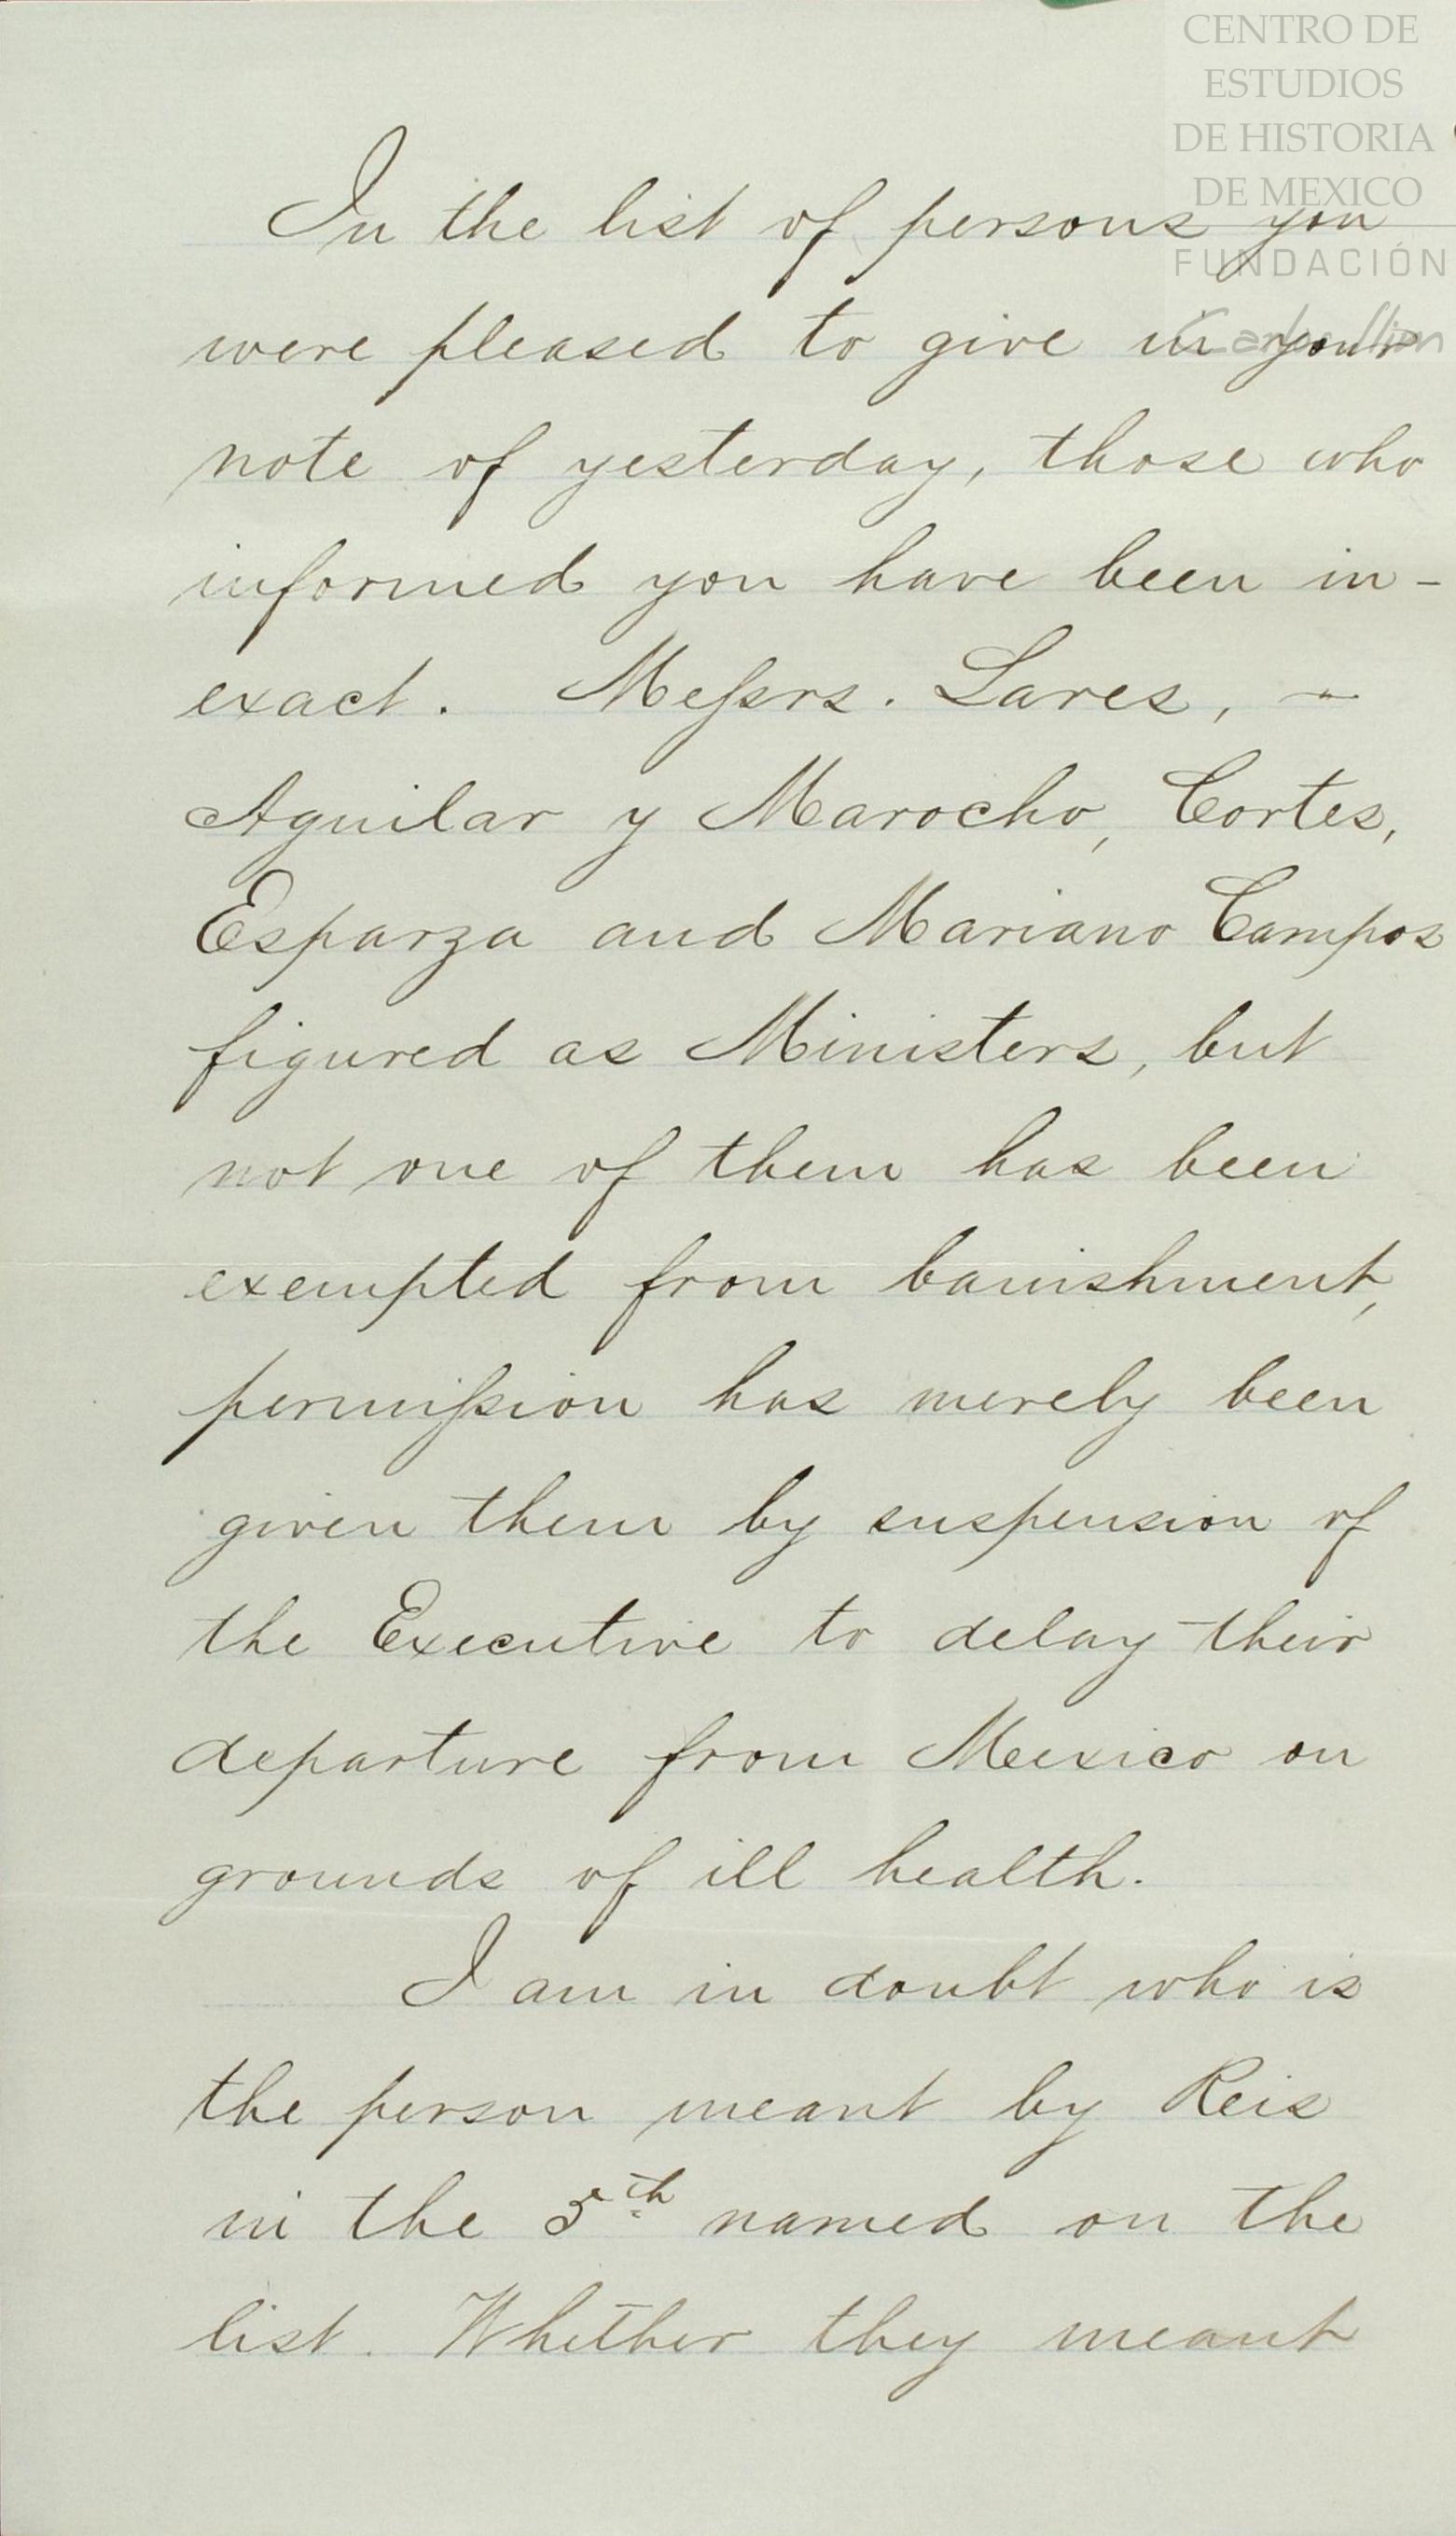 CENTRO DE
ESTUDIOS
DE HISTORIA
DE MEXICO
FUNDACIÓN
In the list of persons you
were pleased to give in your
note of yesterday, those who
informed you have been in-
exact. Messrs. Lares, -
Aguilar y Marocho, Cortes,
Esparza and Mariano Campos
figured as Ministers, but
not one of them has been
exempted from banishment,
permission has merely been
given them by suspension of
the Executive to delay their
departure from Mexico on
grounds of ill health.
I am in doubt who is
the person meant by Reis
in the 5th named on the
list. Whether they meant